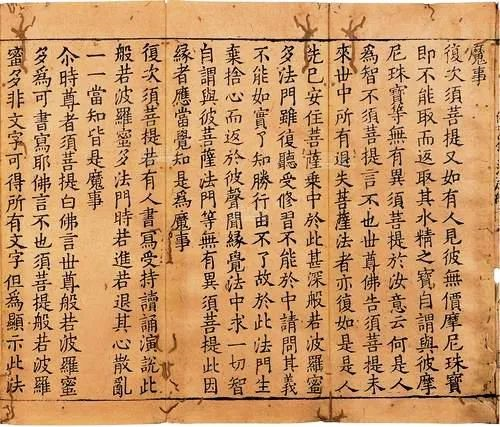 魔事
復次須菩提又如有人見彼無價摩尼珠寶
即不能取而返取其水精之寶自謂與彼摩
尼珠寶等無有異須菩提於汝意云何是人
為智不須菩提言不也世尊佛告須菩提未
來世中所有退失菩薩法者亦復如是是人
先已安住菩薩乗中於此甚深般若波羅蜜
多法門雖復聽受修習不能於中請問其義
不能如實了知勝行由不了故於此法門生
棄捨心而返於彼聲聞緣覺法中求一切智
自謂與彼菩薩法門等無有異須菩提此因
緣者應當覺知是為魔事
復次須菩提若有人書寫受持讀誦演說此
般若波羅蜜多法門時若進若退其心散亂
一一當知皆是魔事
尒時尊者須菩提白佛言世尊般若波羅蜜
多為可書寫耶佛言不也須菩提般若波羅
蜜多非文字可得所有文字但為顯示此法